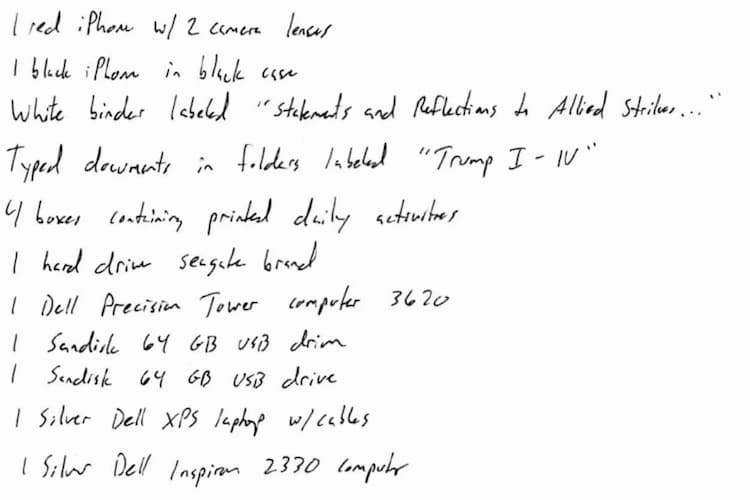 1 red iPhone w/ 2 camera lenses
1 black iPhone in black case
White binder labeled "Statements and Reflections to Allied Strikes..."
Typed documents in folders labeled "Trump I - IV"
4 boxes containing printed daily activities
1 hard drive seagate brand
1 Dell Precision Tower computer 3620
1 Sandisk 64 GB USB drive
1 Sandisk 64 GB USB drive
1 Silver Dell XPS laptop w/cables
1 Silver Dell Inspiron 2330 computer